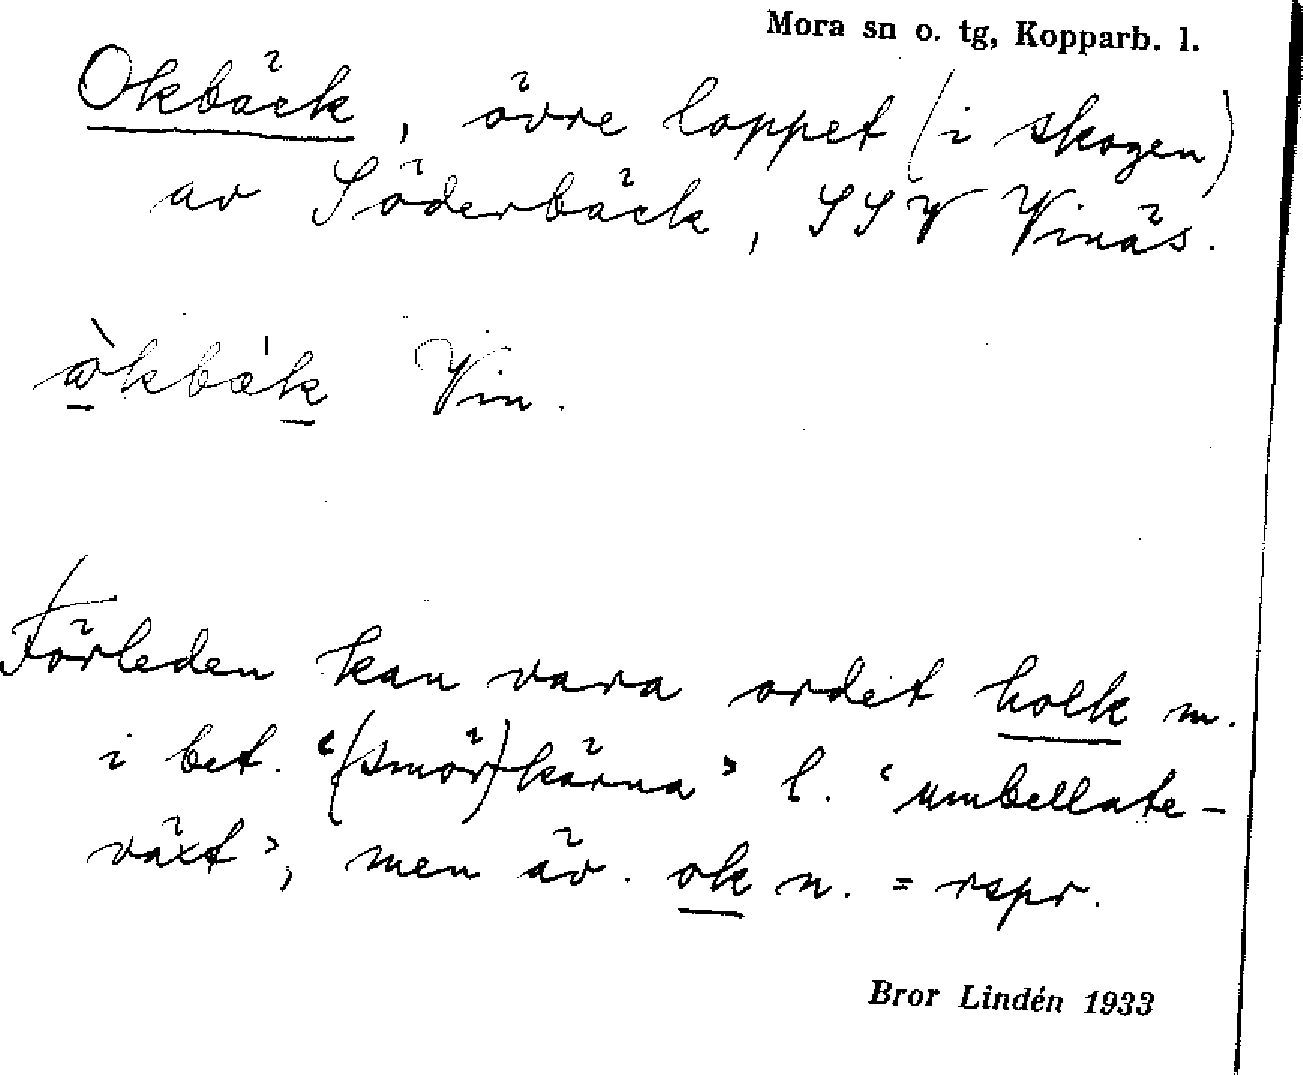 Mora sn o. tg, Kopparb. l.
Okbäck, övre loppet (i skogen)
av Söderbäck, SSV Vinäs.
Vin.
Förleden kan vara ordet holk m.
i bet. ‘(smör)kärna’ l. ‘umbellate-
växt’, men äv. ok n. = rspr.
Bror Lindén 1933